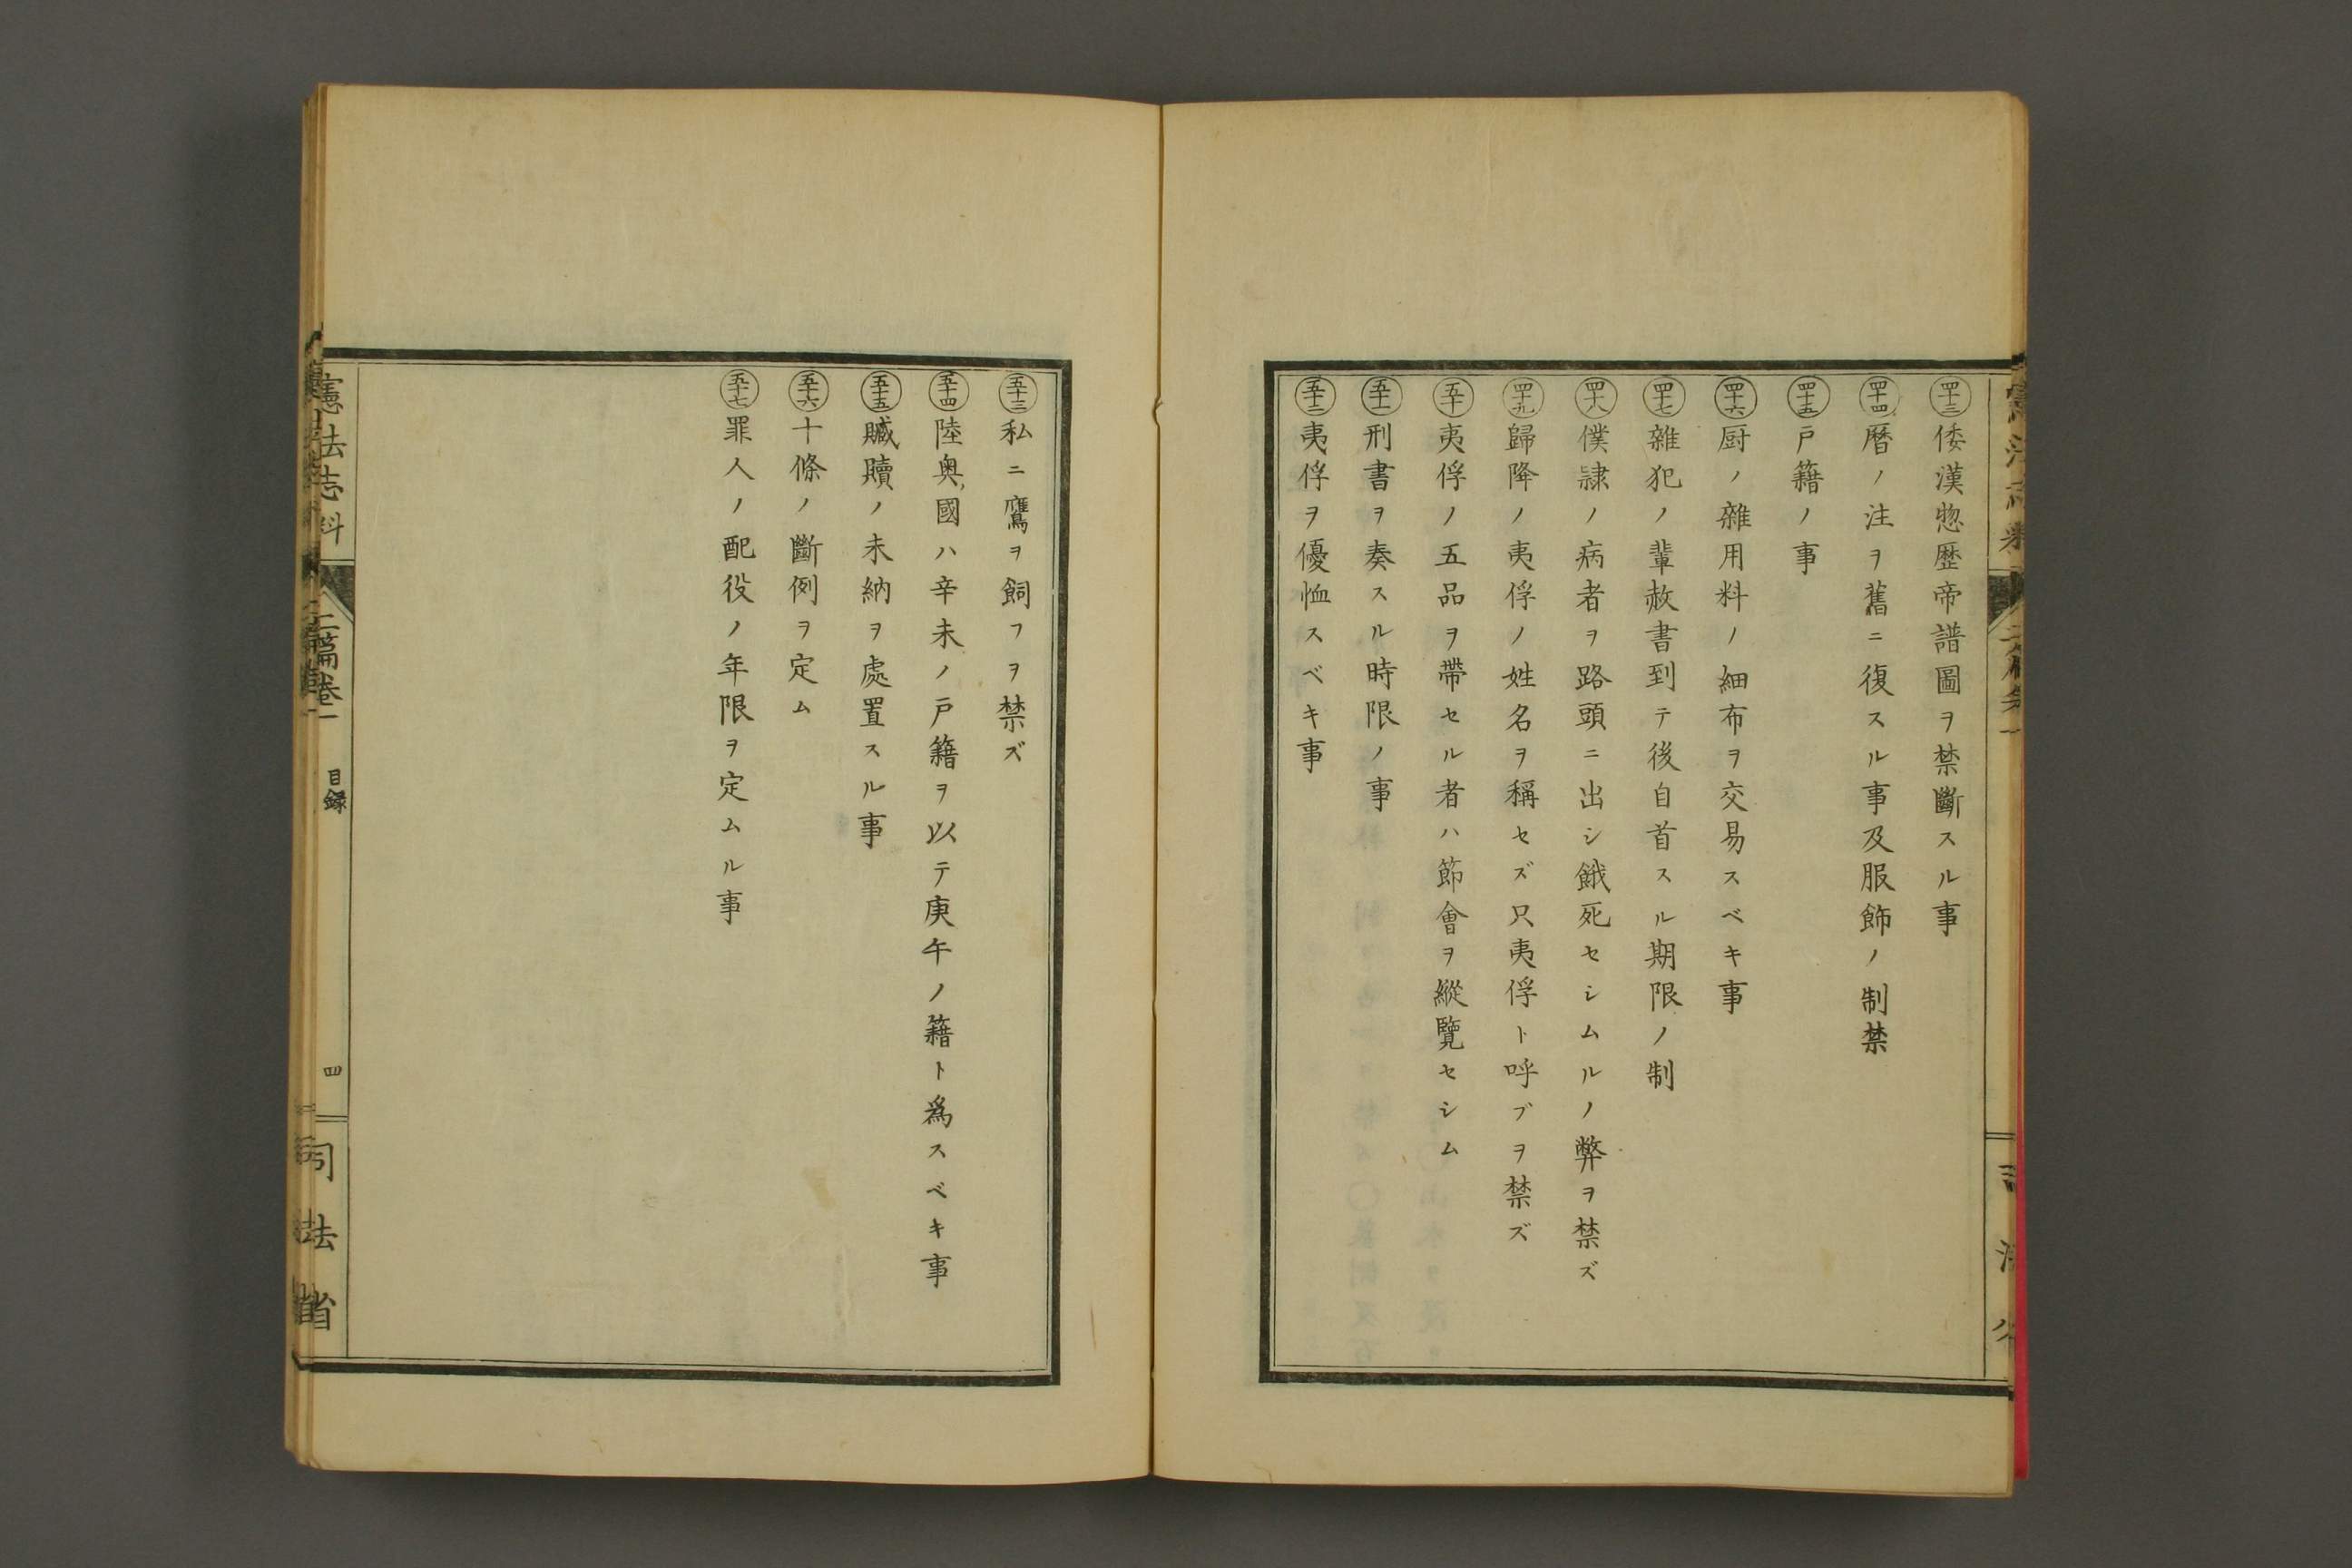 四十三 倭漢惣歴帝譜圖ヲ禁斷スル事
四十四 暦ノ注ヲ舊ニ復スル事及服飾ノ制禁
四十五 戸籍ノ事
四十六 厨ノ雜用料ノ細布ヲ交易スベキ事
四十七 雜犯ノ輩赦書到テ後自首スル期限ノ制
四十八 僕隷ノ病者ヲ路頭ニ出シ餓死セシムルノ弊ヲ禁ズ
四十九 歸降ノ夷俘ノ姓名ヲ稱セズ只夷俘ト呼ブヲ禁ズ
五十 夷俘ノ五品ヲ帶セル者ハ節會ヲ縱覽セシム
五十一 刑書ヲ奏スル時限ノ事
五十二 夷俘ヲ優恤スベキ事
五十三 私ニ鷹ヲ飼フヲ禁ズ
五十四 陸奥國ハ辛未ノ戸籍ヲ以テ庚午ノ籍ト爲スベキ事
五十五 贓贖ノ未納ヲ處置スル事
五十六 十條ノ斷例ヲ定ム
五十七 罪人ノ配役ノ年限ヲ定ムル事
憲法志料 二篇卷一 目録 四 司法省